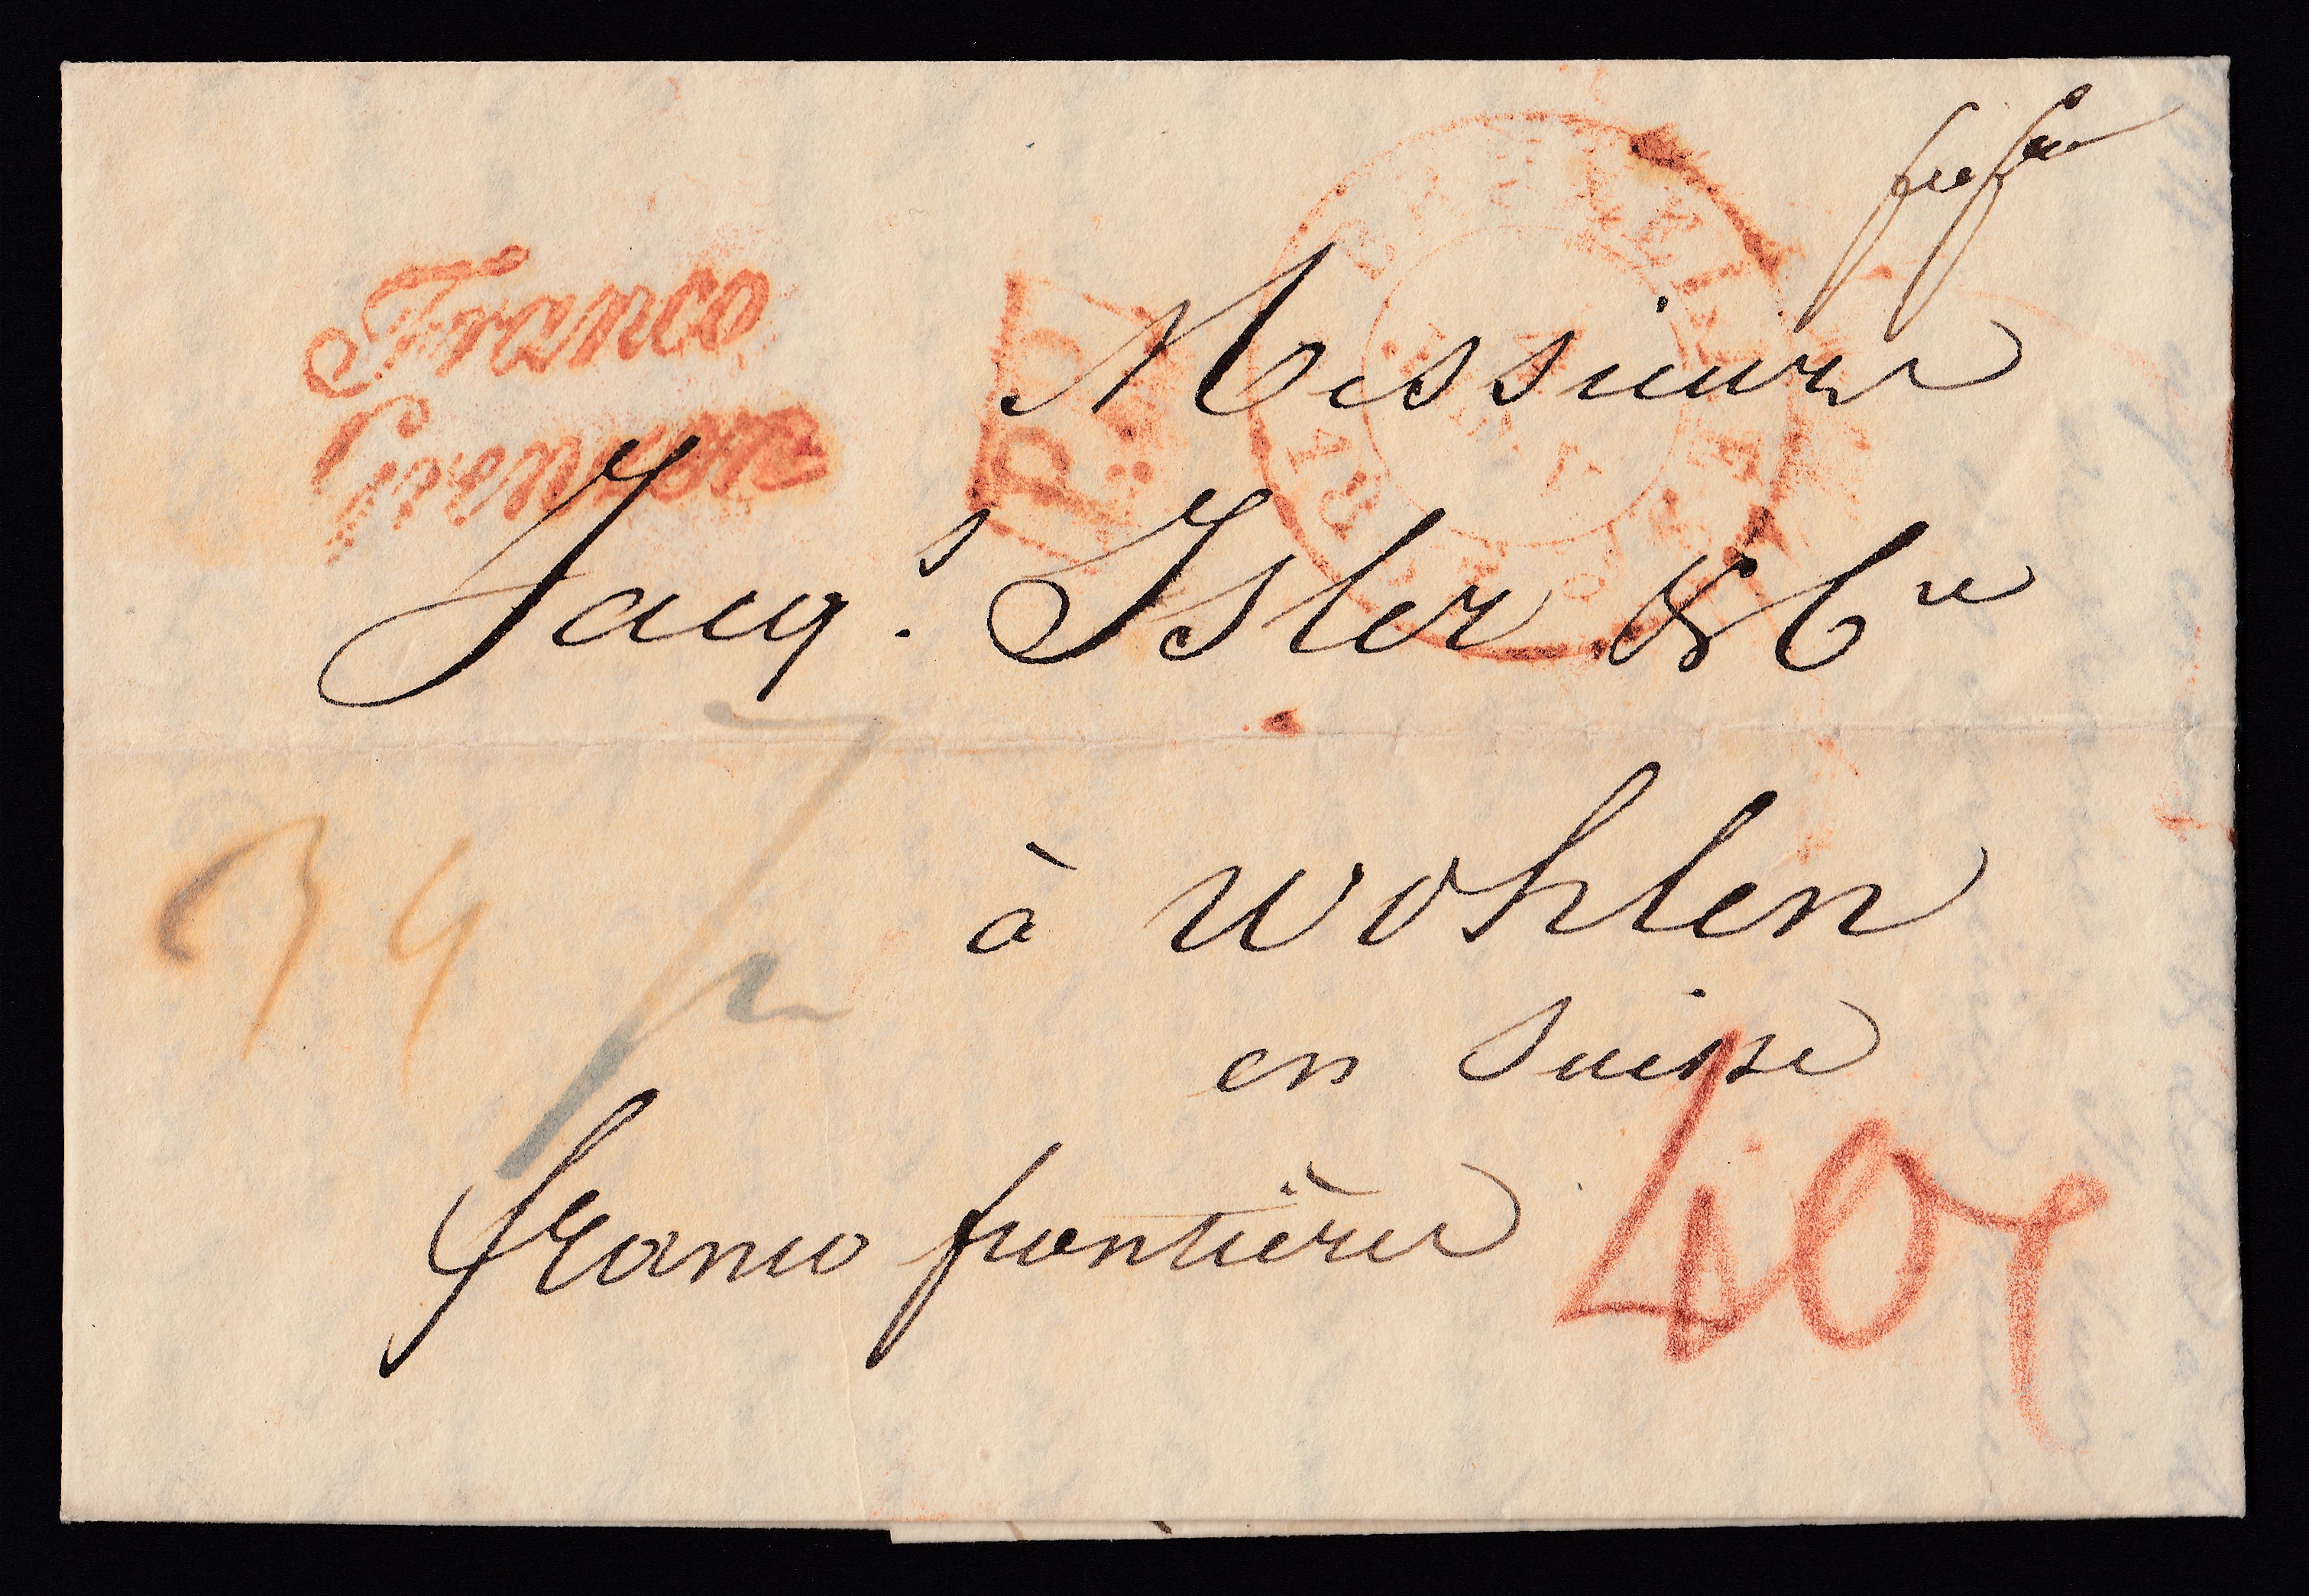 Franco
Grenzen
P.P.
Messieurs
Jaqs. Isler & Cie
à Wohlen
en Suisse
franco frontière
40